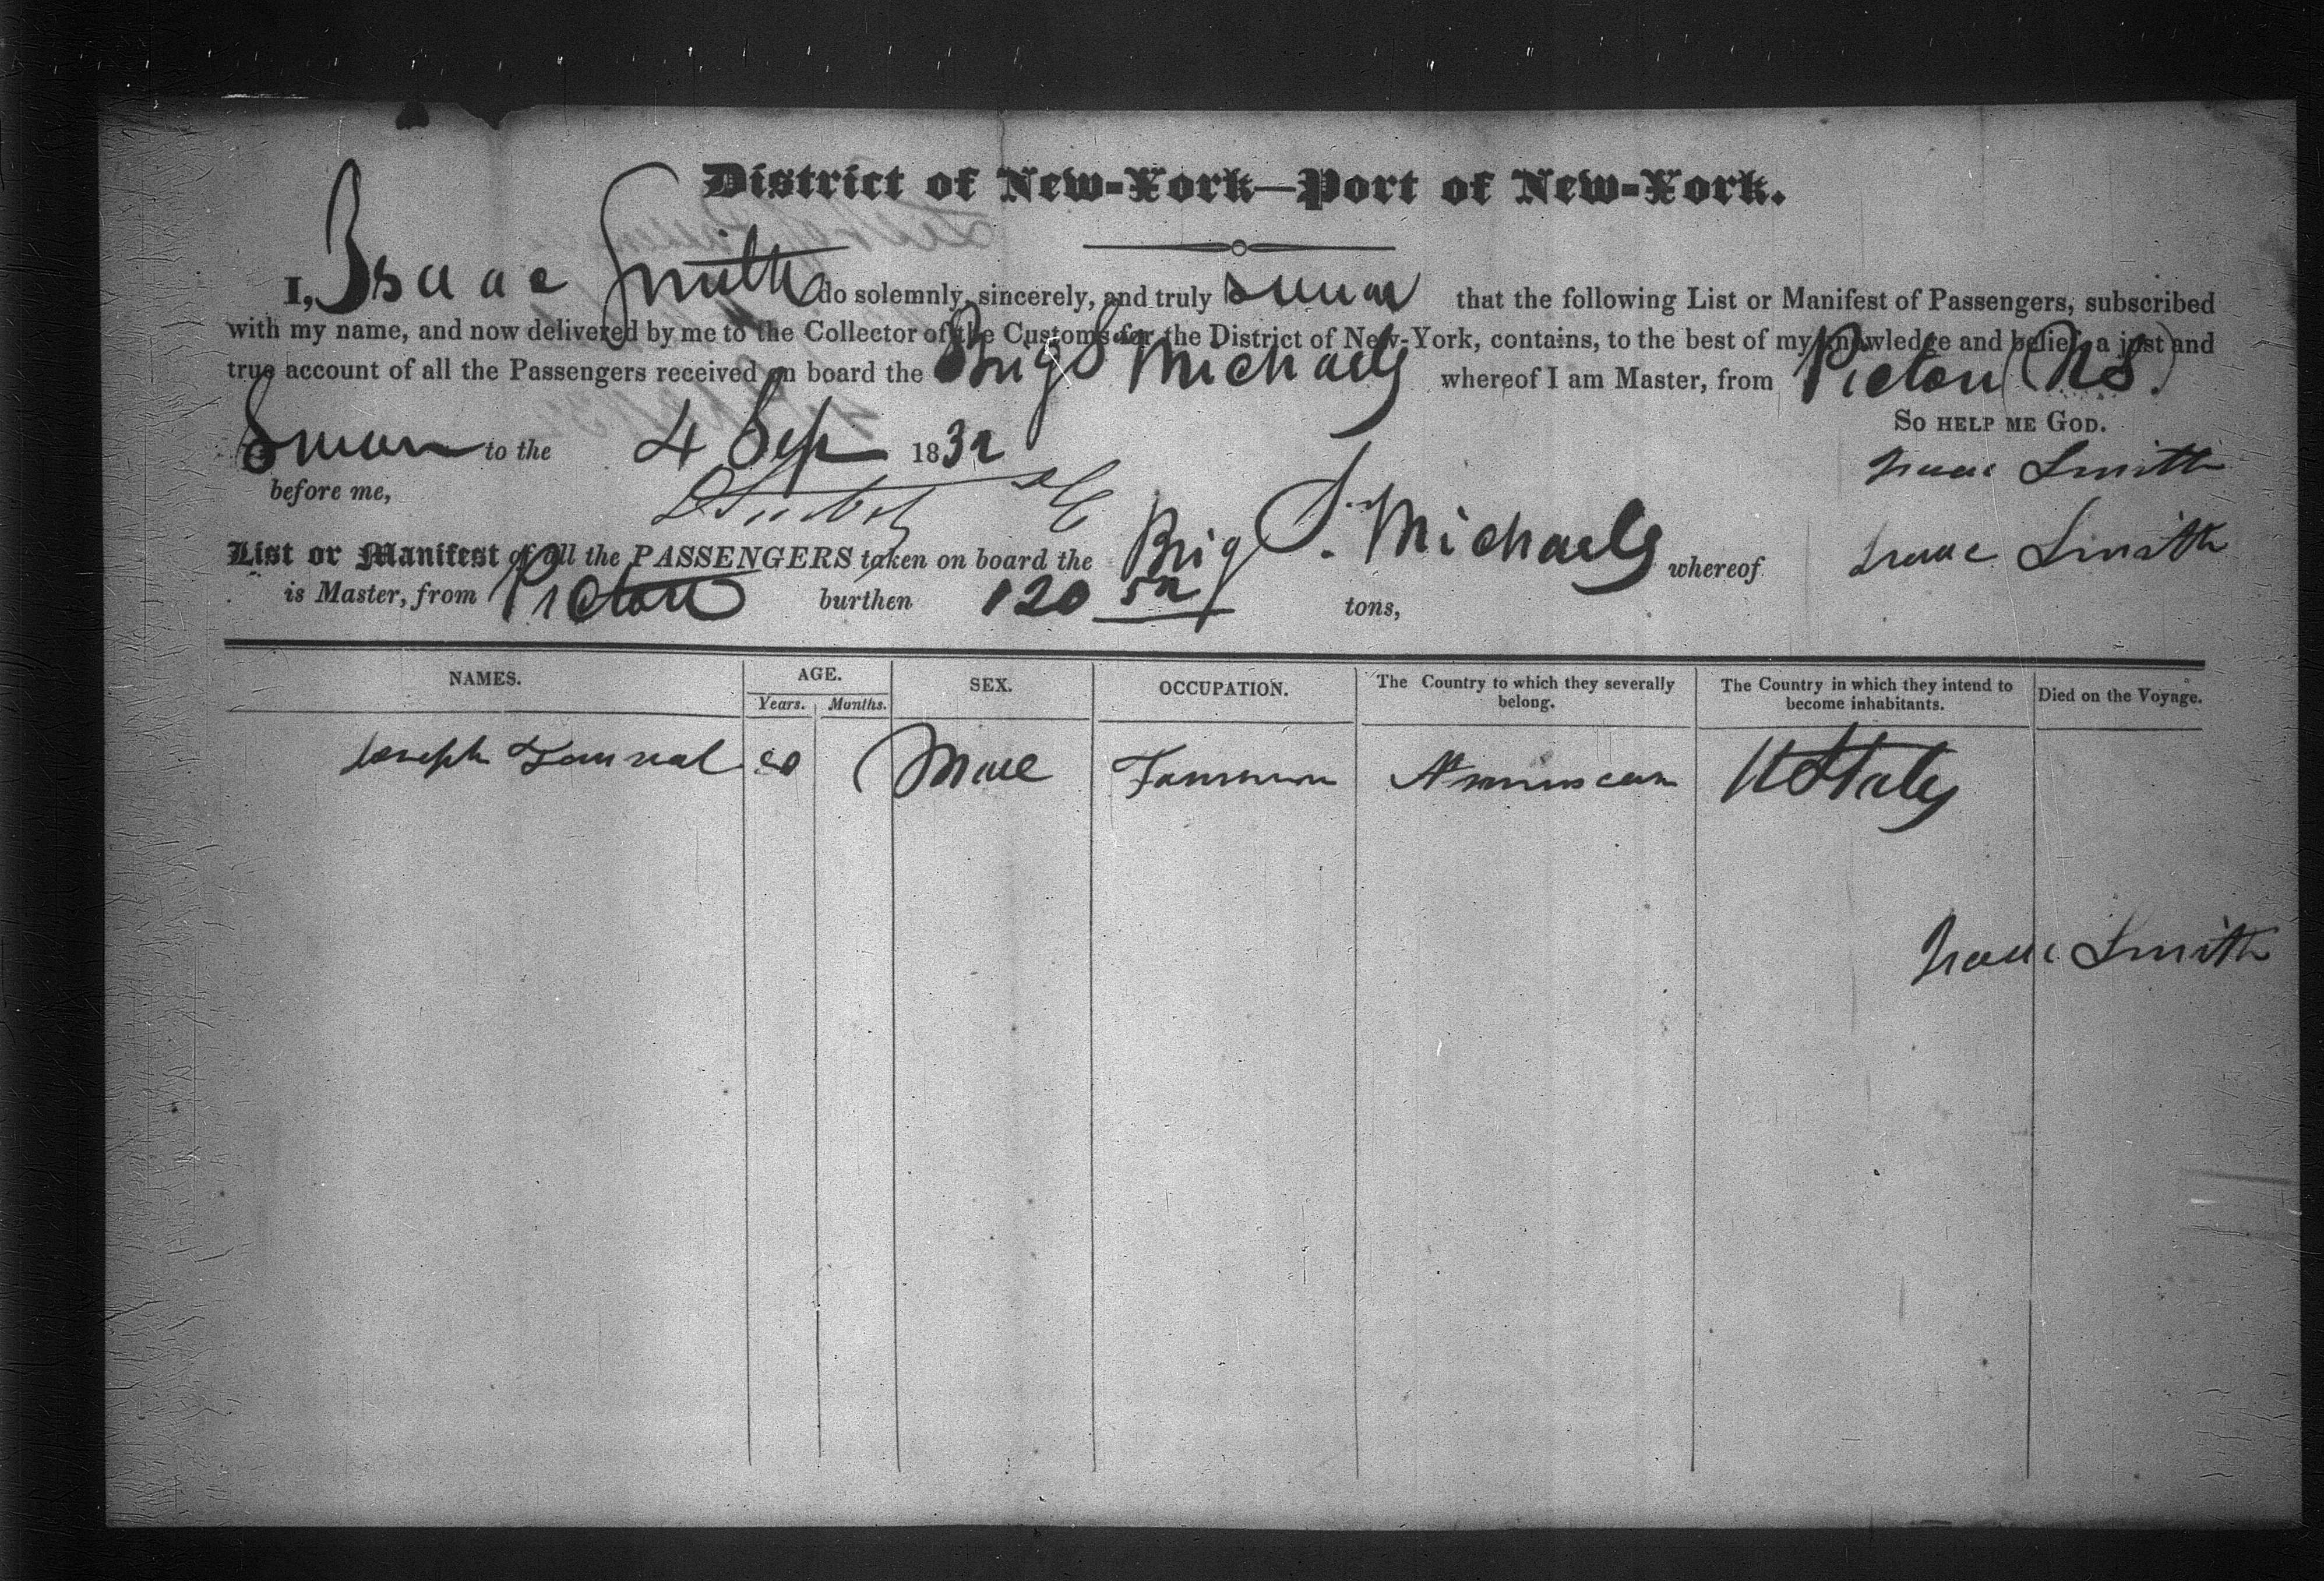 District of New-York—Port of New-York.
I, Isaac Smith do solemnly, sincerely, and truly swear that the following List or Manifest of Passengers, subscribed
with my name, and now delivered by me to the Collector of the Customs for the District of New-York, contains, to the best of my knowledge and belief, a just and
true account of all the Passengers received on board the Brig S Michaels whereof I am Master, from Pictou (NS)
So help me God.
Sworn to the 4 Sep 1832
Isaac Smith
before me,
List or Manifest of all the PASSENGERS taken on board the Brig St. Michaels whereof Isaac Smith
is Master, from Pictou burthen 120 52 tons,
NAMES. AGE. SEX. OCCUPATION. The Country to which they severally belong. The Country in which they intend to become inhabitants. Died on the Voyage.
Years. Months.
Joseph Male U States
Isaac Smith